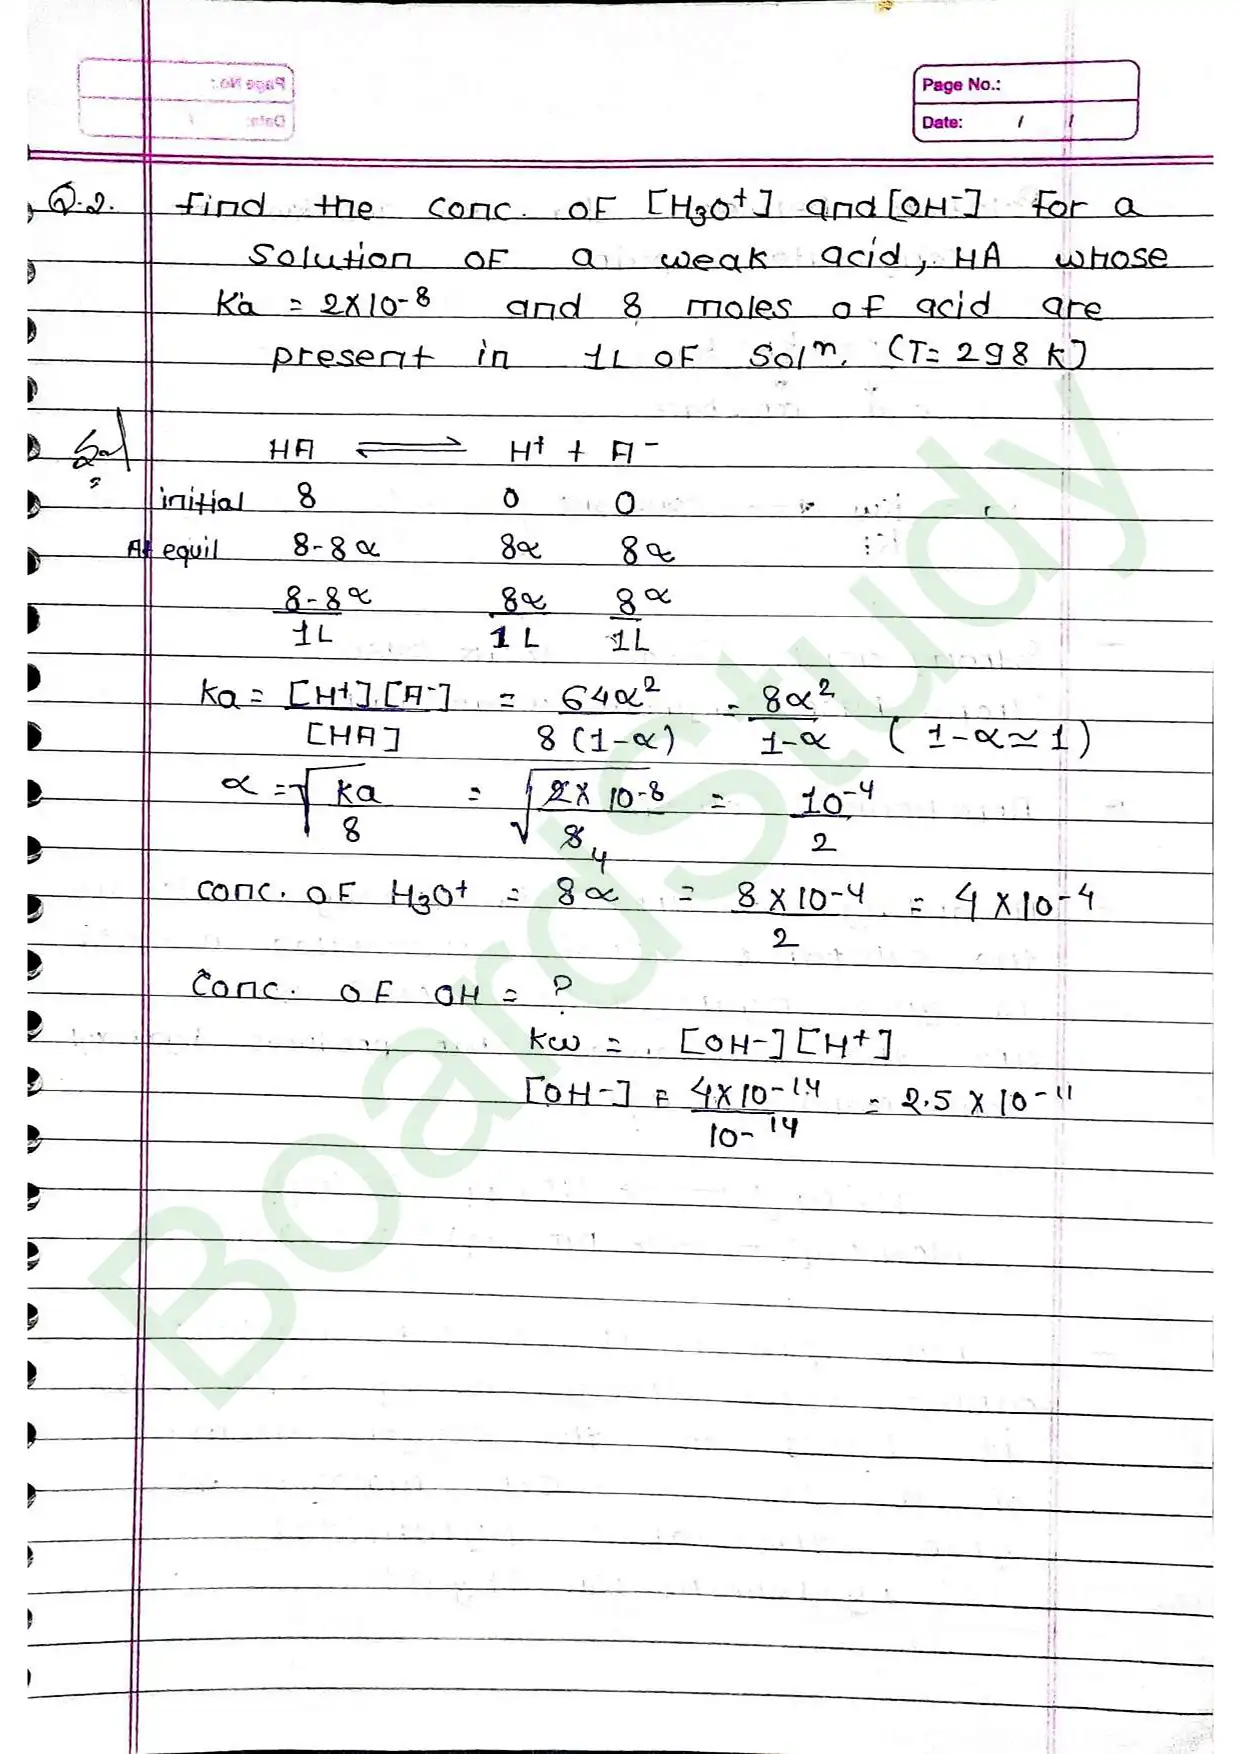 Page No.:
Date: / /
Q.2. find the conc. of [H3O+] and [OH-] for a
solution of a weak acid, HA whose
Ka = 2×10-8 and 8 moles of acid are
present in 1L of Soln. (T=298 K]
Sol HA ⇌ H+ + A-
initial 8 0 0
At equil 8-8α 8α 8α
8-8α/1L 8α/1L 8α/1L
Ka = [H+].[A-]/[HA] = 64α²/8(1-α) = 8α²/1-α (1-α≃1)
α = √Ka/8 = √2×10-8/8 4 = 10-4/2
conc. of H3O+ = 8α = 8×10-4/2 = 4×10-4
Conc. of OH = ?
Kw = [OH-][H+]
[OH-] = 4×10-14/10-14 = 2.5×10-11
BoardStudy